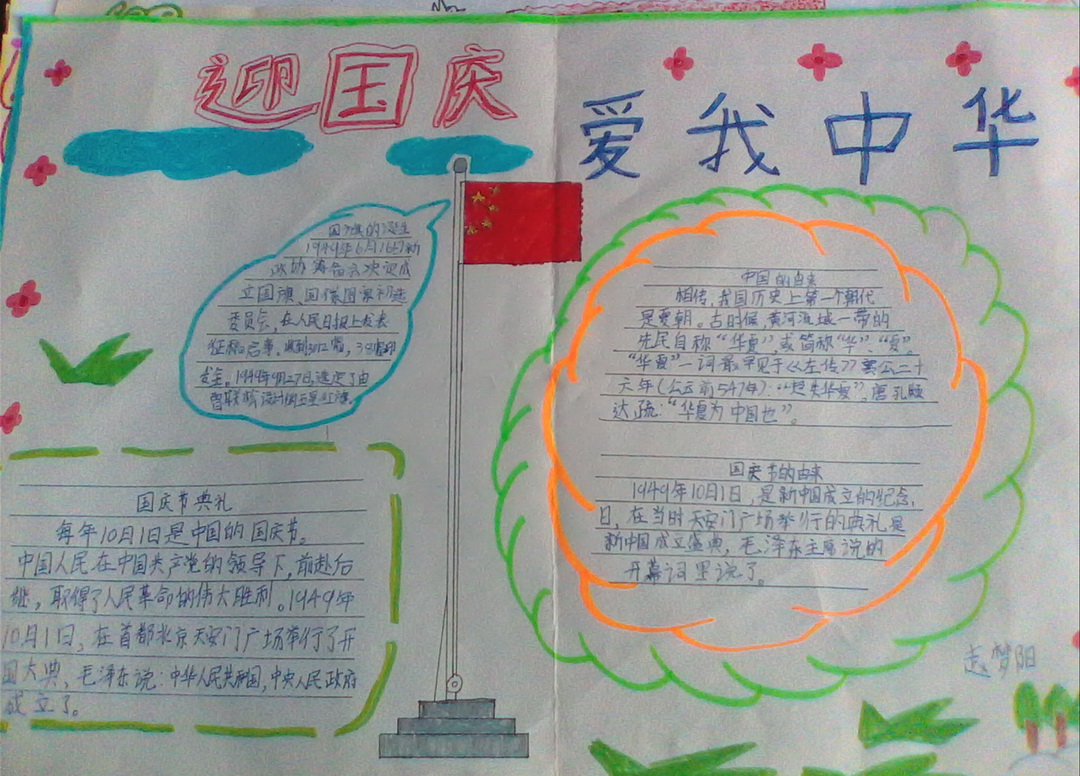 迎国庆
爱我中华
国旗的诞生
1949年6月16日新
政协筹备会决定成
立国旗、国徽图案初选
委员会，在人民日报上发表
征稿启事，收到3012
1949年9月27日，选定了由
曾联松设计的五星红旗。
国庆节典礼
每年10月1日是中国的国庆节。
中国人民在中国共产党的领导下，前赴后
继，取得了人民革命的伟大胜利。1949年
10月1日，在首都北京天安门广场举行了开
国大典，毛泽东说：中华人民共和国，中央人民政府
成立了。
中国的由来
相传，我国历史上第一个朝代
是夏朝。古时候，黄河流域一带的
先民自称“华夏”或简称“华”“夏”。
“华夏”一词最早见于《左传》襄公二十
六年（公元前547年）：“楚失华夏”。唐孔颖
达疏：“华夏为中国也”。
国庆节的由来
1949年10月1日，是新中国成立的纪念
日，在当时天安门广场举行的典礼是
新中国成立盛典，毛泽东主席说的
开幕词里说了。
赵梦阳